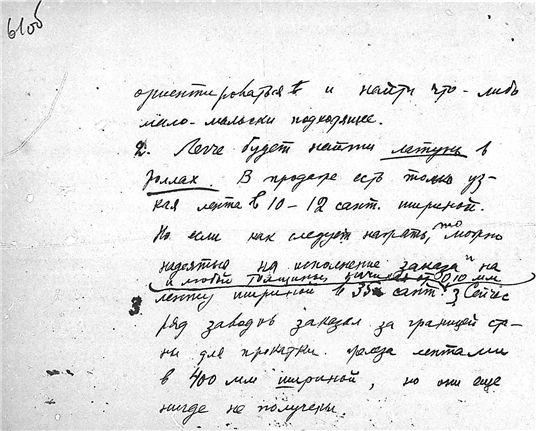 61об
ориентироваться и найти что-либо
мало-мальски подходящее.
2. Легче будет найти латунь в
роллах. В продаже есть только уз-
кая лента в 10-12 сант. шириной.
Но если как следует нажать, то можно
надеяться на исполнение заказа на
и любой толщины, начиная от 0,10 мм
ленту шириной в 35 сант. 3) Сейчас
3
ряд заводов заказал за границей ста-
ны для прокатки лентами
в 400 мм шириной, но они еще
нигде не получены.